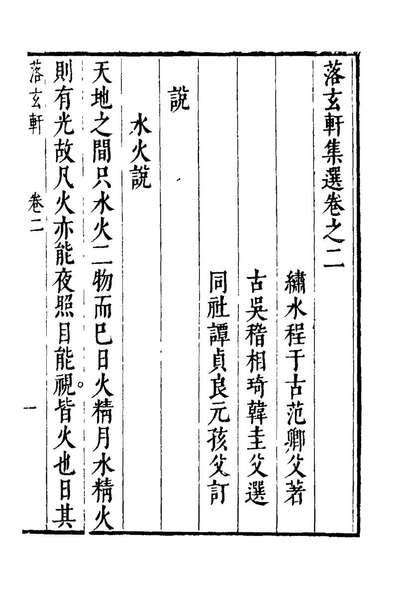 落玄軒集選卷之二
繡水程于古范卿父著
古吳稽相琦韓圭父選
同社譚貞良元孩父訂
說
水火說
天地之間只水火二物而已日火精月水精火
則有光故凡火亦能夜照目能視皆火也日其
落玄軒 卷二 一